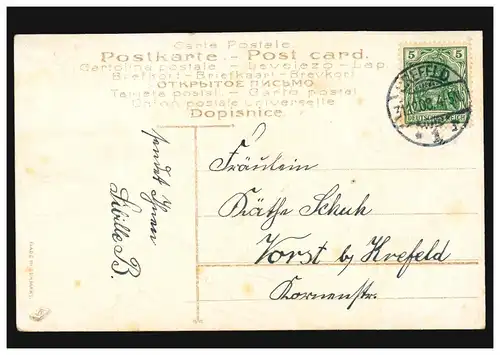 Carte Postale
Postkarte - Post card.
Cartolina postale - Levelező-Lap
Brefkort - Briefkaart - Brevkort
ОТКРЫТОЕ ПИСЬМО
Tarjeta postal - Carta postal
Union postale universelle
Dopisnice
5 5
CREFELD
DEUTSCHES REICH
sendet Ihnen
Sibille B.
Fräulein
Käthe Schuh
Vorst b/ Krefeld
Kornenstr.